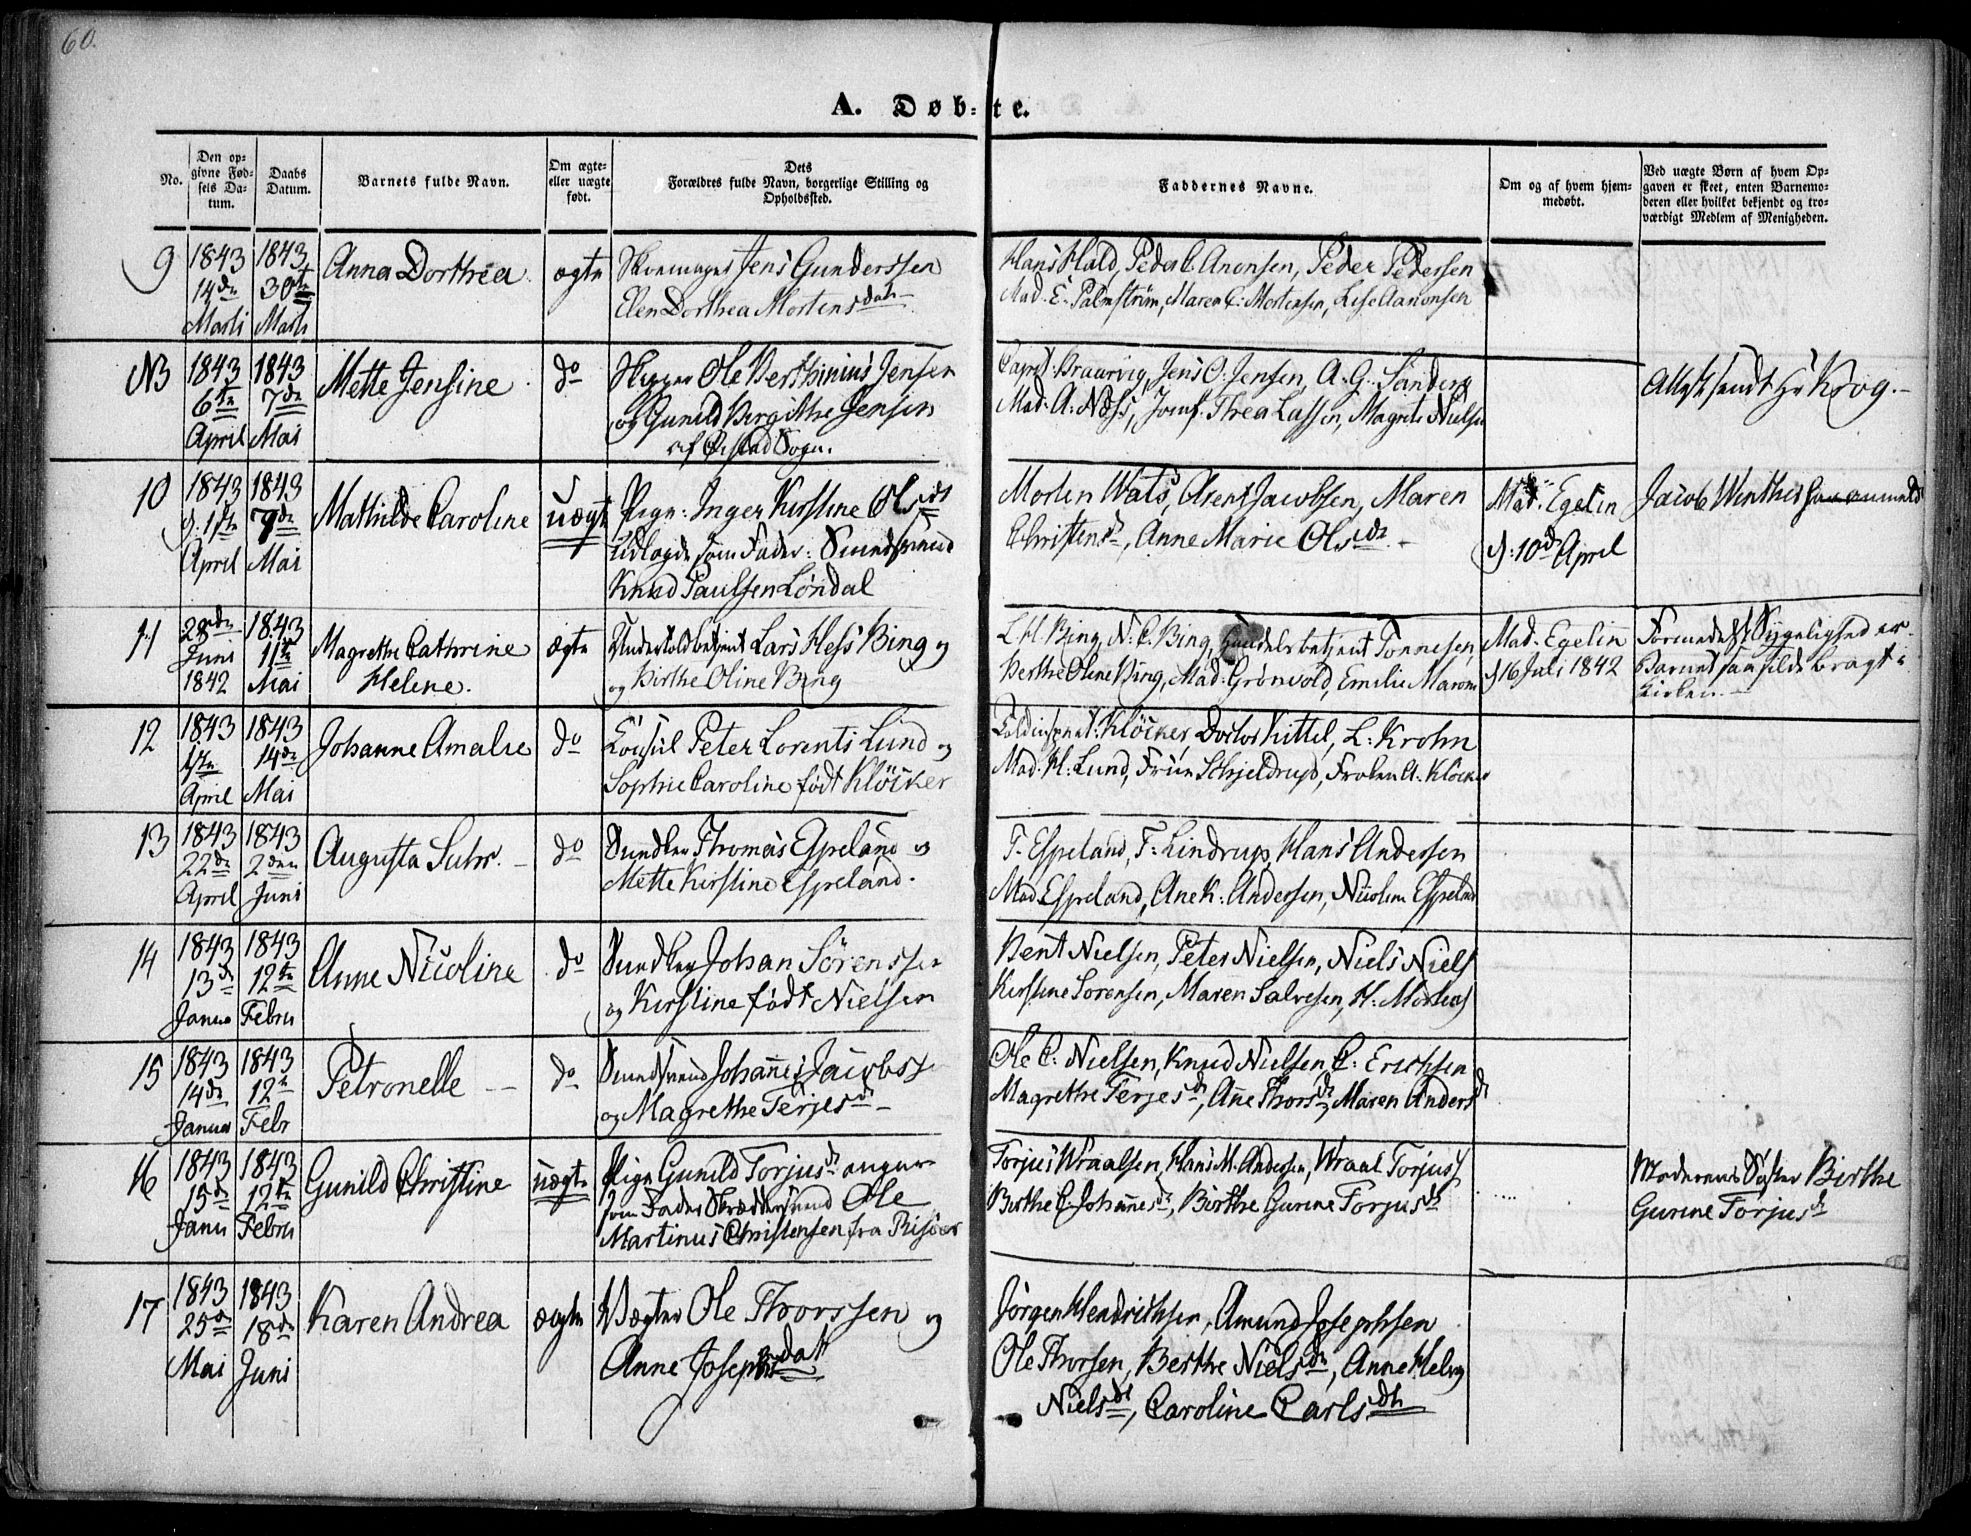 60.
A. Døb-te.
No.
Den op-
givne Fød-
sels Da-
tum.
Daabs
Datum.
Barnets fulde Navn.
Om ægte-
eller uægte
født.
Dets
Forældres fulde Navn, borgerlige Stilling og
Opholdssted.
Faddernes Navne.
Om og af hvem hjem-
medøbt.
Ved uægte Børn af hvem Op-
gaven er skeet, enten Barnemo-
deren eller hvilket bekjendt og tro-
værdigt Medlem af Menigheden.
9
1843
14de
Marti
1843
30te
Marti
Anna Dorthea
ægte
Skoemager Jens Gunderssen
Elen Dorthea Mortensdatr
Hans Hald, Peder C. Anonsen, Peder Pedersen
Mad. E. Palmstrüm, Maren C. Mortensen, Lise Aanonsen
NB
1843
6te
April
1843
7de
Mai
Mette Jensine
do
Skipper Ole Berthinius Jensen
og Gunild Bergitthe Jensen
af Øistad Sogn.
Capt. Braarvig, Jens O. Jensen, A. G. Sandberg
Mad. A. Næss, Jomf. Threa Lassen, Magrete Nielsen
Attest sendt Hr Krog.
10
1843
d. 1ste
April
1843
7de
Mai
Mathilde Caroline
uægte
Pige: Inger Kirstine Olsdt
udlagde som Fader: Smedsvend
Knud Paulsen Løndal
Morten Wats, Arent Jacobsen, Maren
Christensdt, Anne Marie Olsdr
Mad. Egelin
d. 10de April
Jacob Winther
11
28de
Juni
1842
1843
11te
Mai
Magrethe Cathrine
Helene.
ægte
Undertoldbetjent Lars Hess Bing og
og Birthe Oline Bing
L. H. Bing, N. C. Bing, Handelsbetjent Tönnesen,
Berthe Oline Bing, Mad. Grönvold, Emilie
Mad. Egelin
d 16 Juli 1842
Formedelst Sygelighed er
Barnet saa silde bragt i
Kirken.
12
1843
17de
April
1843
14de
Mai
Johanne Amalie
do
Consul Peter Lorents Lund og
Sophie Caroline født Klöcker
Klöcker, Doctor Kittel, L. Krohn
Mad. H. Lund, Frue Schjeldrup, Frøken A. Klöcker
13
1843
22de
April
1843
2den
Juni
Augusta Suhr.
do
Bundtler Thomas Espeland og
Mette Kirstine Espeland.
T. Espeland, F. Lindrup, Hans Andersen
Mad. Espeland, Ane K. Andersen, Nicoline Espeland
14
1843
13de
Janua
1843
12te
Febru
Anne Nicoline
do
Johan Sörenssen
og Kirstine født Nielsen
Bent Nielsen, Peter Nielsen, Niels Niels
Kirstine Sorensen, Maren Salvesen, H. Mortens
15
1843
14de
Janua
1843
12te
Febr
Petronelle
do
Johannes Jacobs
og Magrethe Terjesdr
Ole C. Nielsen, Knud Nielsen, C. Erichsen
Magrethe Terjesdr, Ane Thorsdr, Maren Andersdr
16
1843
15de
Janu
1843
12te
Febru
Gunild Christine
uægte
Pige Gunild Torjusdr angav
som Fader Skræddersvend Ole
Martinus Christensen fra Risöer
Torjus Wraalsen, Hans M. Andersen, Wraal Torjuss
Birthe C. Johannesdr, Birthe Gurine Torjusdr
Moderens Søster Birthe
Gurine Torjusdr
17
1843
25de
Mai
1843
18de
Juni
Karen Andrea
ægte
Vægter Ole Thorssen og
Anne Josephsdatt
Jörgen Hendrichsen, Amund Josephsen
Ole Thorsen, Berthe Nielsdr, Anne Helvig
Nielsdr, Caroline Carlsdtr